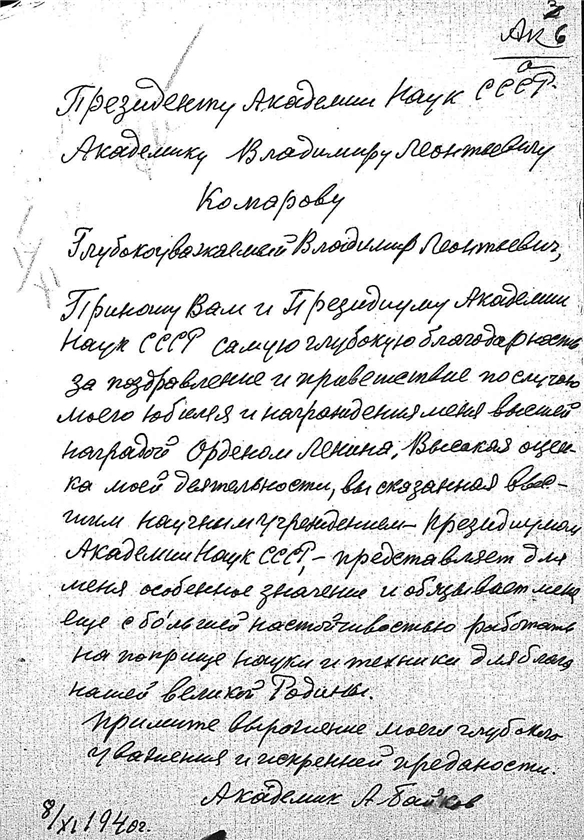 Ак 6
Президенту Академии Наук СССР
Академику Владимиру Леонтьевичу
Комарову
Глубокоуважаемый Владимир Леонтьевич,
Приношу Вам и Президиуму Академии
Наук СССР самую глубокую благодарность
за поздравление и приветствие по случаю
моего юбилея и награждения меня высшей
наградой Орденом Ленина. Высокая оцен-
ка моей деятельности, высказанная выс-
шим научным учреждением – Президиумом
Академии Наук СССР, – представляет для
меня особенное значение и обязывает меня
еще с бо́льшей настойчивостью работать
на поприще науки и техники для блага
нашей великой Родины.
Примите выражение моего глубокого
уважения и искренней преданости.
Академик А. Байков
8/XI 1940г.